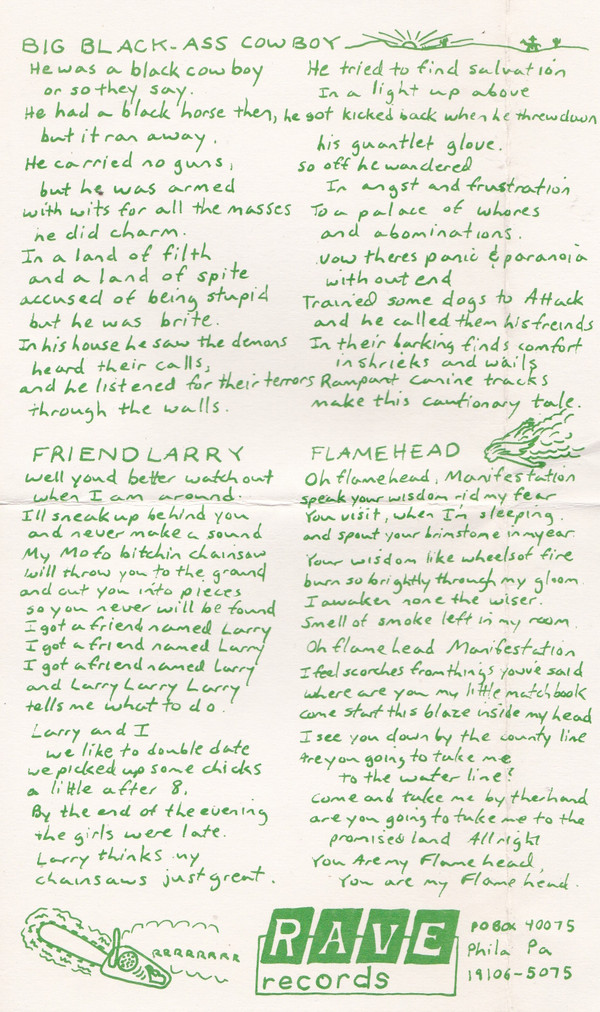 BIG BLACK-ASS COWBOY
He was a black cowboy
or so they say.
He had a black horse then,
but it ran away.
He carried no guns,
but he was armed
with wits for all the masses
he did charm.
In a land of filth
and a land of spite
accused of being stupid
but he was brite.
In his house he saw the demons
heard their calls,
and he listened for their terrors
through the walls.
He tried to find salvation
In a light up above
he got kicked back when he threw down
his guantlet glove.
so off he wandered
In angst and frustration
To a palace of whores
and abominations.
now theres panic & paranoia
without end
Trained some dogs to Attack
and he called them his freinds
In their barking finds comfort
in shrieks and wails
Rampant canine tracks
make this cautionary tale.
FRIEND LARRY
well youd better watch out
when I am around.
I'll sneak up behind you
and never make a sound
My Mofo bitchin chainsaw
will throw you to the ground
and cut you into pieces
so you never will be found
I got a friend named Larry
I got a friend named Larry
I got a friend named Larry
and Larry Larry Larry
tells me what to do.
Larry and I
we like to double date
we picked up some chicks
a little after 8,
By the end of the evening
the girls were late.
Larry thinks my
chainsaws just great.
FLAMEHEAD
Oh flamehead, Manifestation
speak your wisdom rid my fear
You visit, when I'm sleeping.
and spout your brimstone in my ear
Your wisdom like wheels of fire
burn so brightly through my gloom.
I awaken none the wiser.
Smell of smoke left in my room.
Oh flamehead Manifestation
I feel scorches from things you've said
where are you my little matchbook
come start this blaze inside my head
I see you down by the county line
Are you going to take me
to the water line?
Come and take me by the hand
are you going to take me to the
promised land All right
You Are my Flamehead,
You are my Flamehead.
RRRRRRRRR
RAVE
records
PO BOX 40075
Phila Pa
19106-5075